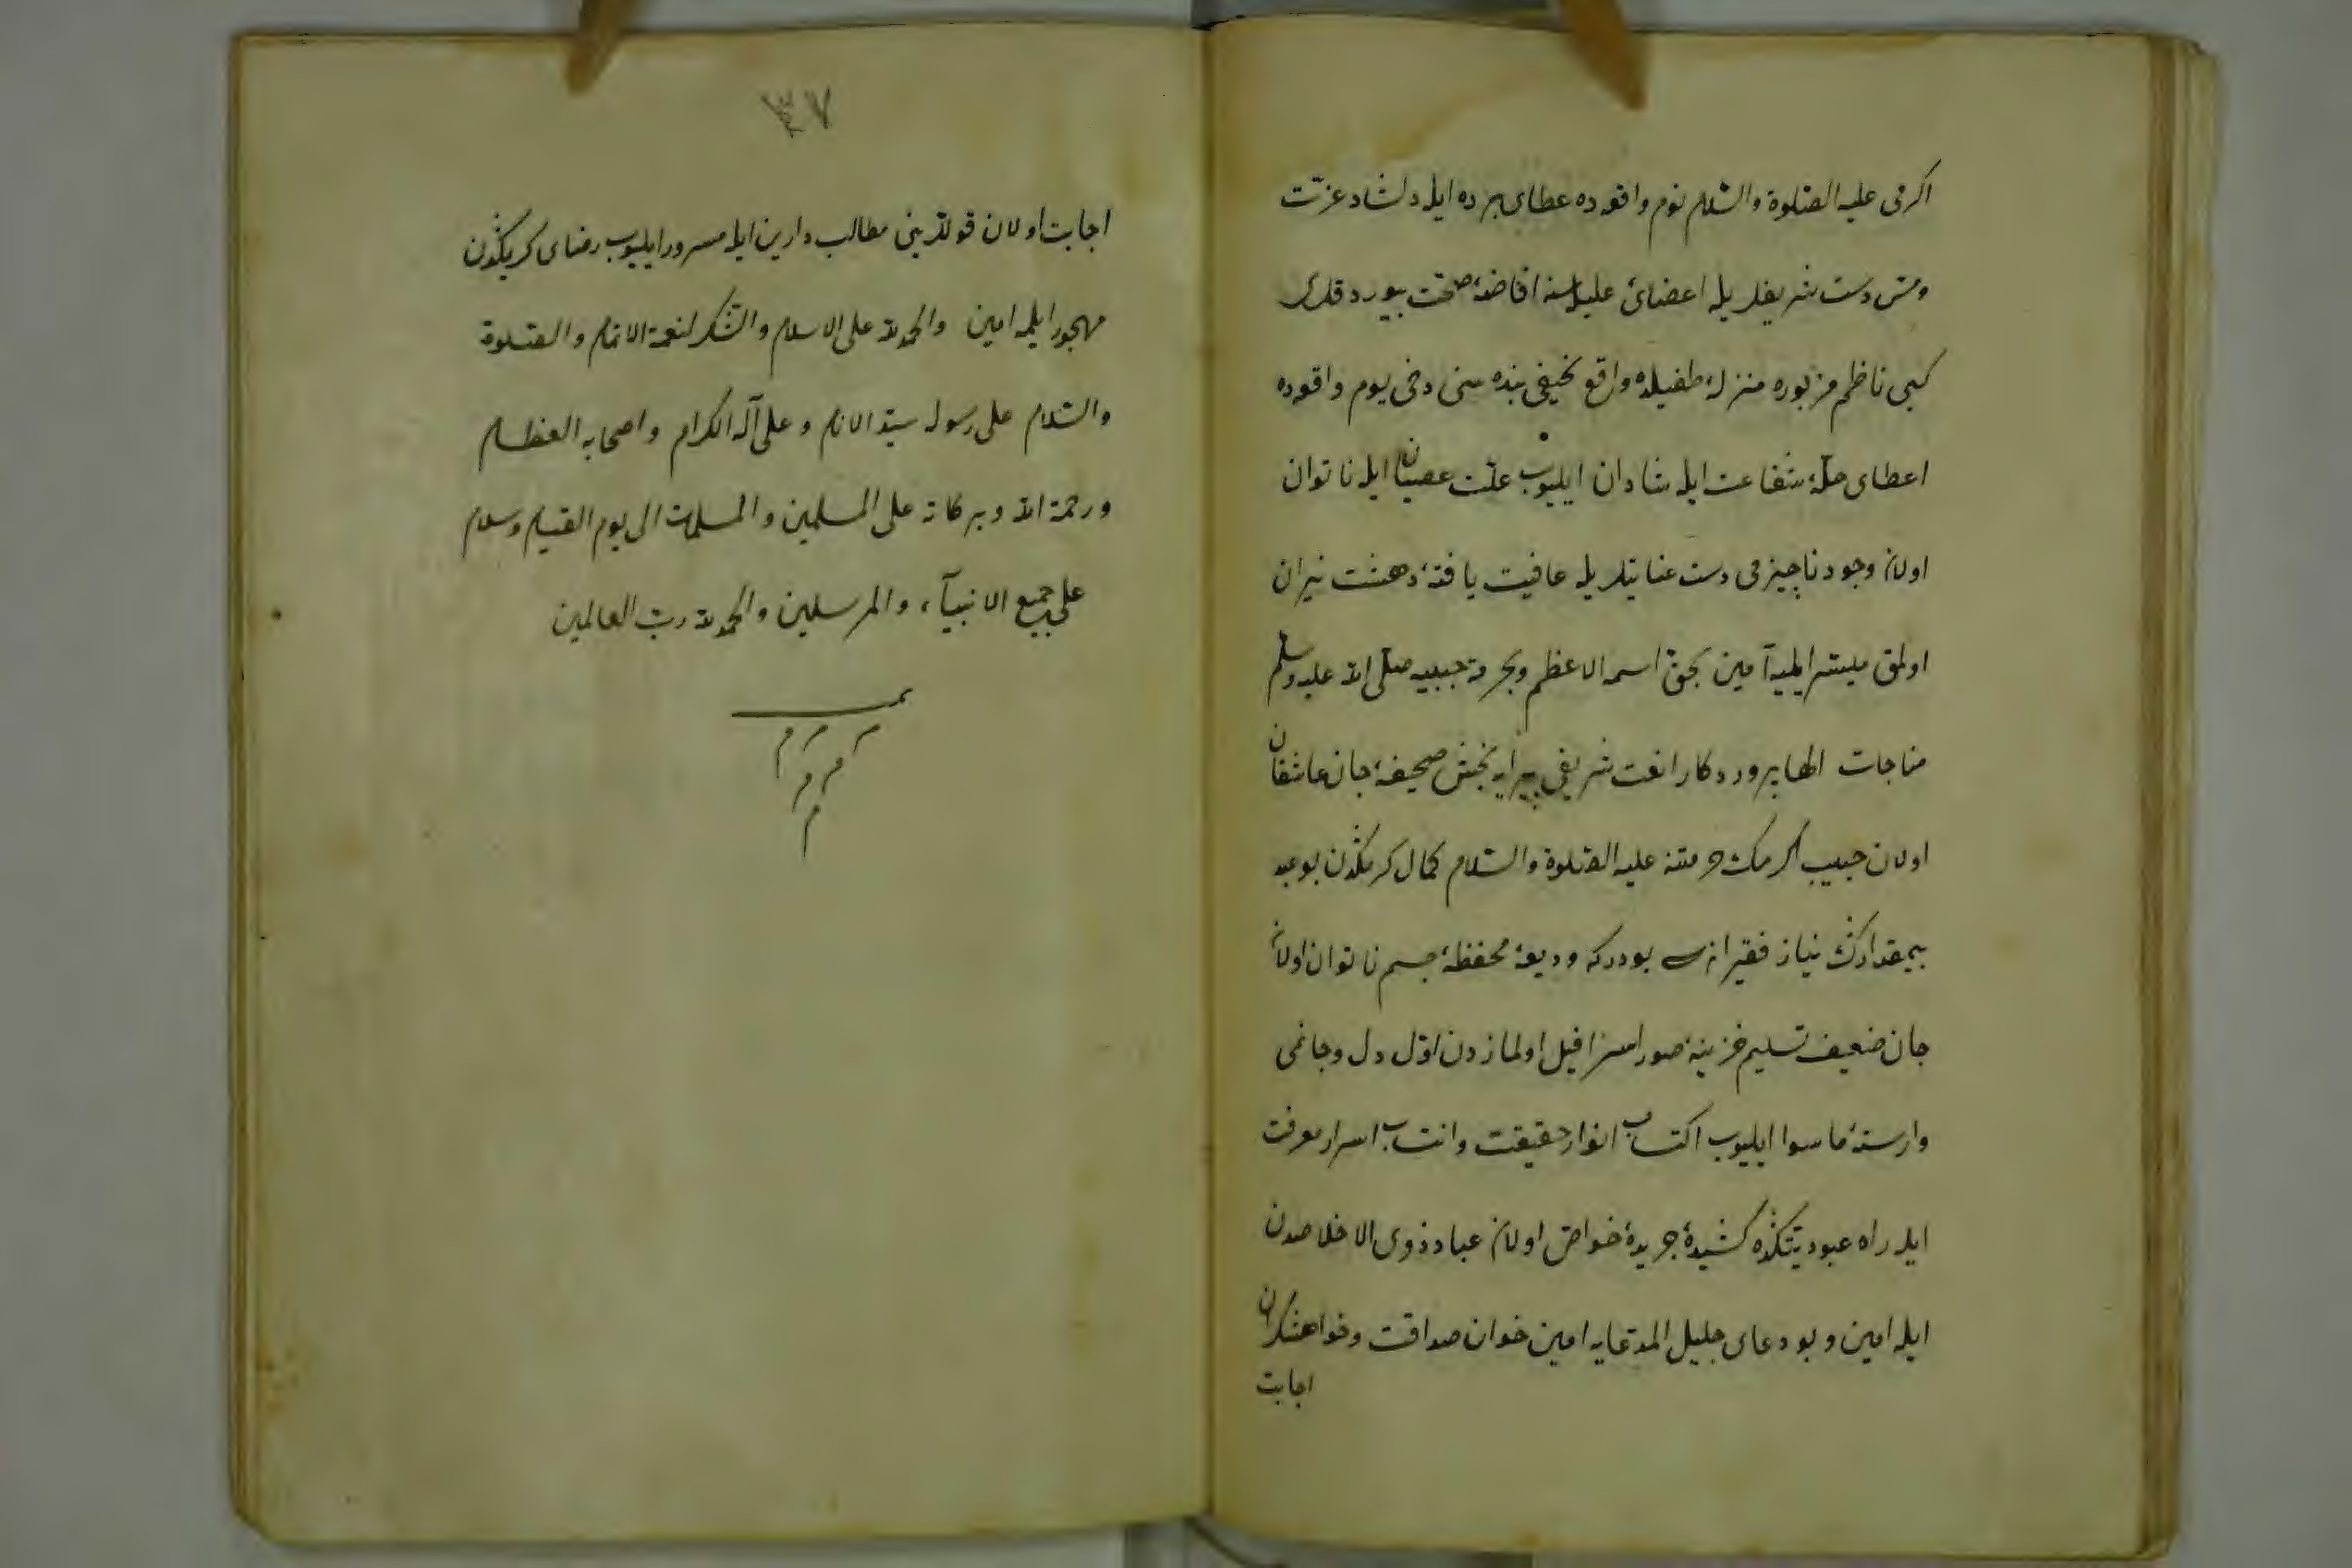 اكرمى عليه الصّلوة والسّلام نوم واقعه ده عطاى برده ايله دلشاد عزّت
ومسّ دست شريفلريله اعضاى عليل‌سنه افاضهٔ صحّت بيوردقلرى
كبى ناظم مزبوره منزلهٔ طفيلده واقع نحيفى بنده سنى دخى يوم واقعه ده
اعطاى حلّهٔ شفاعت ايله شادان ايليوب علّت عصيان ايله ناتوان
اولان وجود ناچيزمى دست عنايتلريله عافيت يافتهٔ دهشت نيران
اولمق ميسّر ايليه آمين بحقّ اسمه الاعظم وبحرمة حبيبه صلّى الله عليه وسلّم
مناجات الها پروردكارا نعت شريفى پيرايه بخش صحيفهٔ جان عاشقان
اولان حبيب اكرمك حرمتنه عليه الصّلوة والسّلام كمال كرمكدن بو عبد
بيمقدارك نياز فقيرانه سى بودركه وديعهٔ محفظهٔ جسم ناتوان اولان
جان ضعيف تسليم خزينهٔ صور اسرافيل اولمازدن اوّل دل وجانمى
وارستهٔ ماسوا ايليوب اكتساب انوار حقيقت وانتساب اسرار معرفت
ايله راه عبوديّتكده كشيدهٔ جريدهٔ خواصّ اولان عباد ذوى الاخلاصدن
ايله امين و بو دعاى جليل المدّعايه امين خوان صداقت وخواهشكران
اجابت
٣٧
اجابت اولان قوللرينى مطالب دارين ايله مسرور ايليوب رضاى كريمكدن
مهجور ايلمه امين والحمد لله على الاسلام والشّكر لنعمة الاتمام والصّلوة
والسّلام على رسوله سيّد الانام وعلى آله الكرام واصحابه العظام
ورحمة الله وبركاته على المسلمين والمسلمات الى يوم القيام وسلام
على جميع الانبيآء والمرسلين والحمد لله ربّ العالمين
تمـ
م م م
م م
م